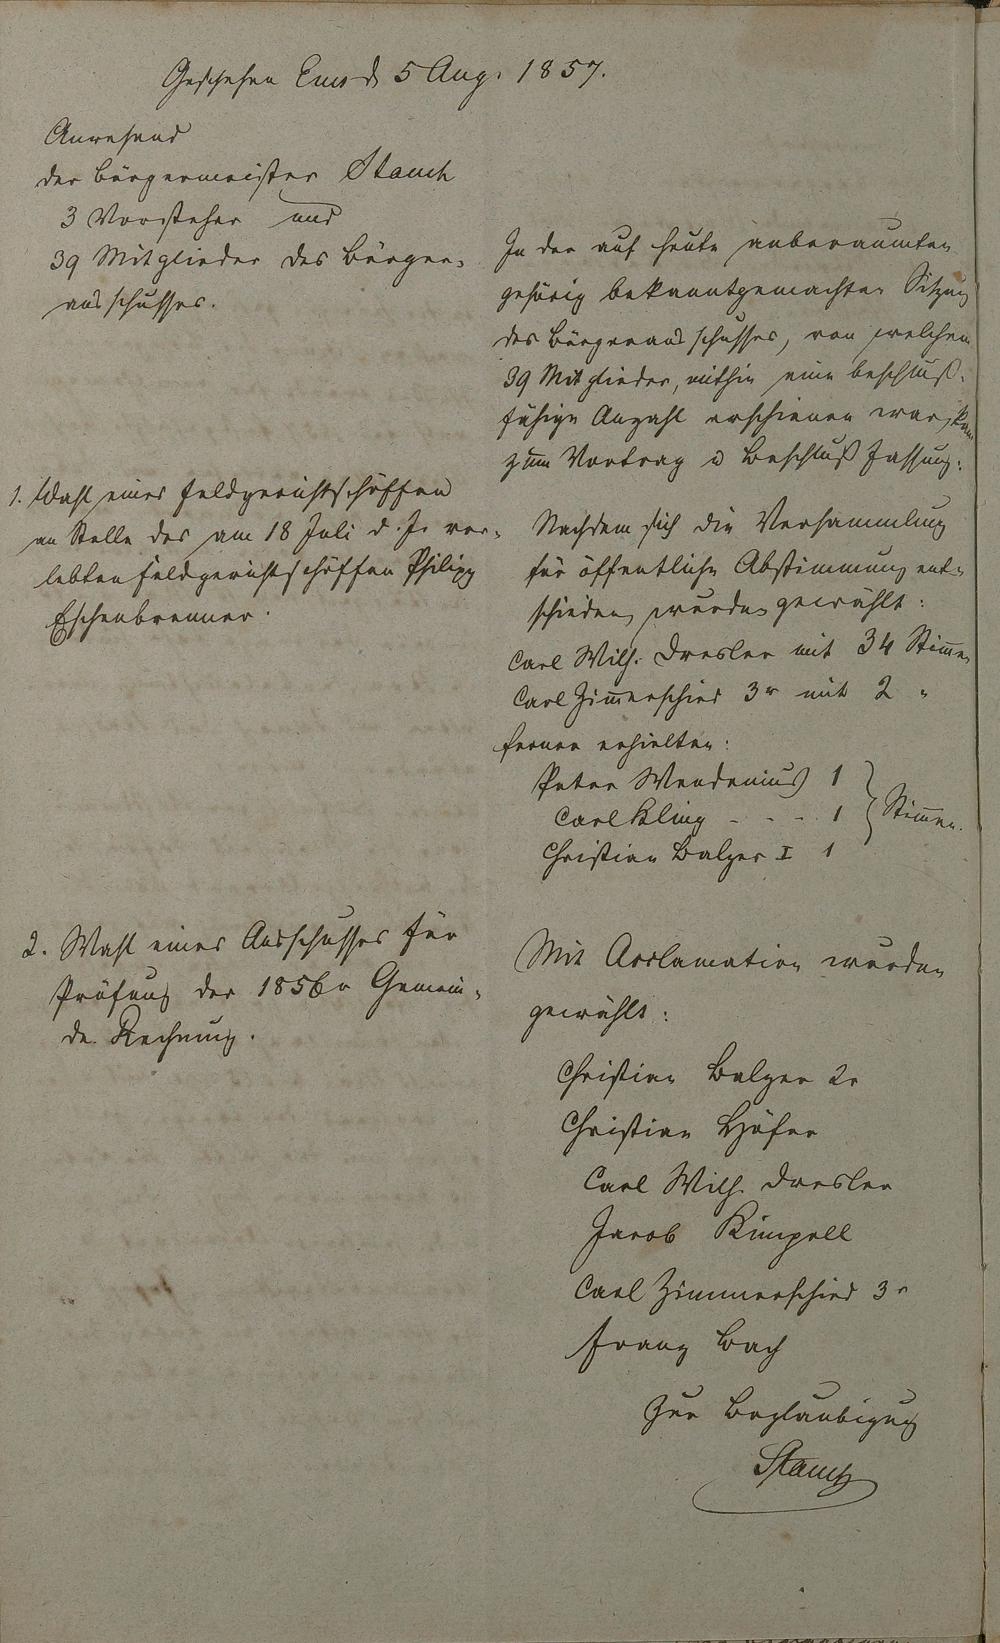 Geschehen Ems d 5 Aug. 1857.
Anwesend
der Bürgermeister Stauch
3 Vorsteher und
39 Mitglieder des Bürger-
ausschusses.
In der auf heute anberaumten
gehörig bekanntgemachten Sitzung
des Bürgerausschusses, von welchem
39 Mitglieder, mithin eine beschluß-
fähige Anzahl erschienen war, kam
zum Vortrag u Beschluß Fassung:
1. Wahl eines Feldgerichtschöffen
an Stelle des am 18 Juli d. Js. ver-
lebten Feldgerichtschöffen Philipp
Eschenbrenner.
Nachdem sich die Versammlung
für öffentliche Abstimmung ent-
schieden, wurden gewählt:
Carl Wilh. Dresler mit 34 Stim̄en
Carl Zim̄erschied 3r mit 2 "
ferner erhielten:
Peter Wendenius 1
Carl Kling - - - 1 } Stim̄en.
Christian Balzer I 1
2. Wahl eines Ausschusses für
Prüfung der 1856r Gemein-
de Rechnung.
Mit Acclamation wurden
gewählt:
Christian Balzer 2r
Christian Höfer
Carl Wilh. Dresler
Jacob Kimpell
Carl Zimmerschied 3r
Franz Bach
Zur Beglaubigung
Stauch